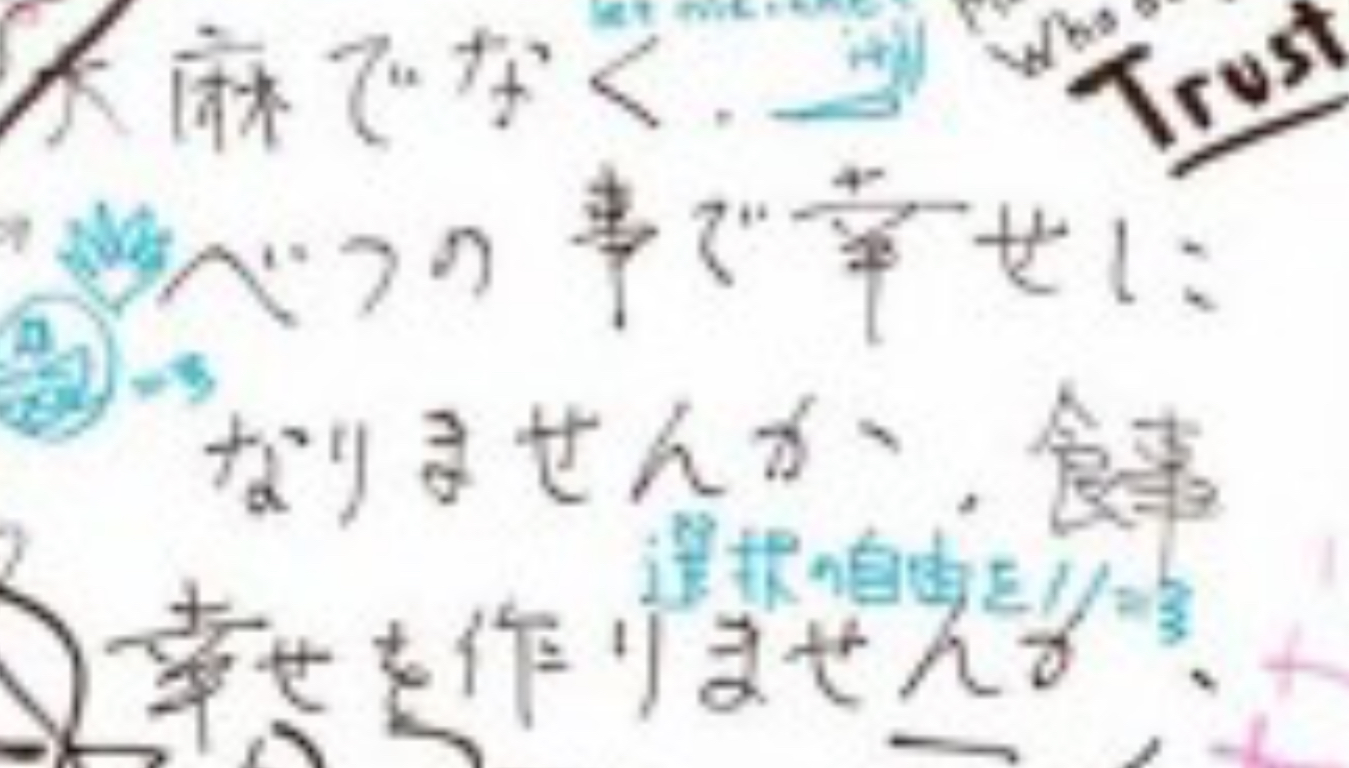 Trust
大麻でなく.
べつの事で幸せに
なりませんか、. 食事
選択の自由を!!=3
幸せを作りませんか、